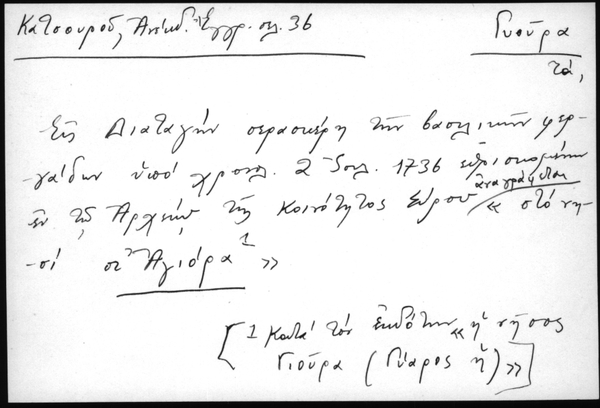 Κατσουροῦ, Ἀνέκδ. Ἔγγρ. σελ. 36
Γιοῦρα
τά,
Εἰς Διαταγήν σερασκέρη τῶν βασιλικῶν φερ-
γάδων ὑπό χρονολ. 2 Ἰουλ. 1736 εὑρισκομένην
ἐν τῷ Ἀρχείῳ τῆς Κοινότητος Σύρου ἀναγράφεται « στό νη-
σί στ' Ἁγιόρα¹ »
[ ¹ Κατά τόν ἐκδότην « ἡ νῆσος
Γιοῦρα (Γύαρος ἡ) » ]